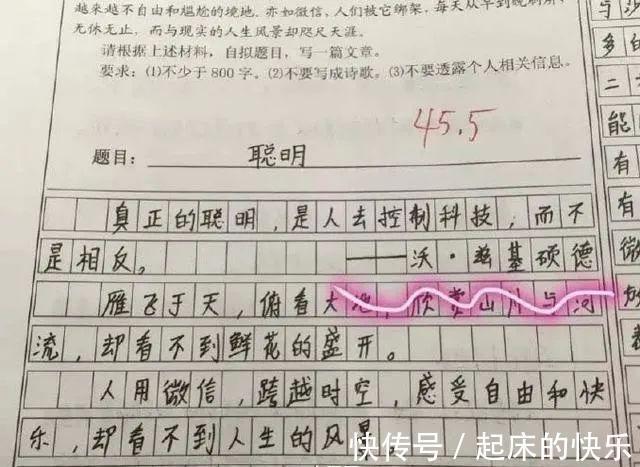 越来越不自由和尴尬的境地。亦如微信,人们被它绑架,每天从早到晚刷屏,
无休无止,而与现实的人生风景却咫尺天涯。
请根据上述材料,自拟题目,写一篇文章。
要求:(1)不少于800字。(2)不要写成诗歌。(3)不要透露个人相关信息。
45.5
题目:聪明
真正的聪明,是人去控制科技,而不
是相反。——沃·兹基硕德
雁飞于天,俯看大地,欣赏山川与河
流,却看不到鲜花的盛开。
人用微信,跨越时空,感受自由和快
乐,却看不到人生的风景
与沙
多的
二
能
有
有
微
快传号/起床的快乐